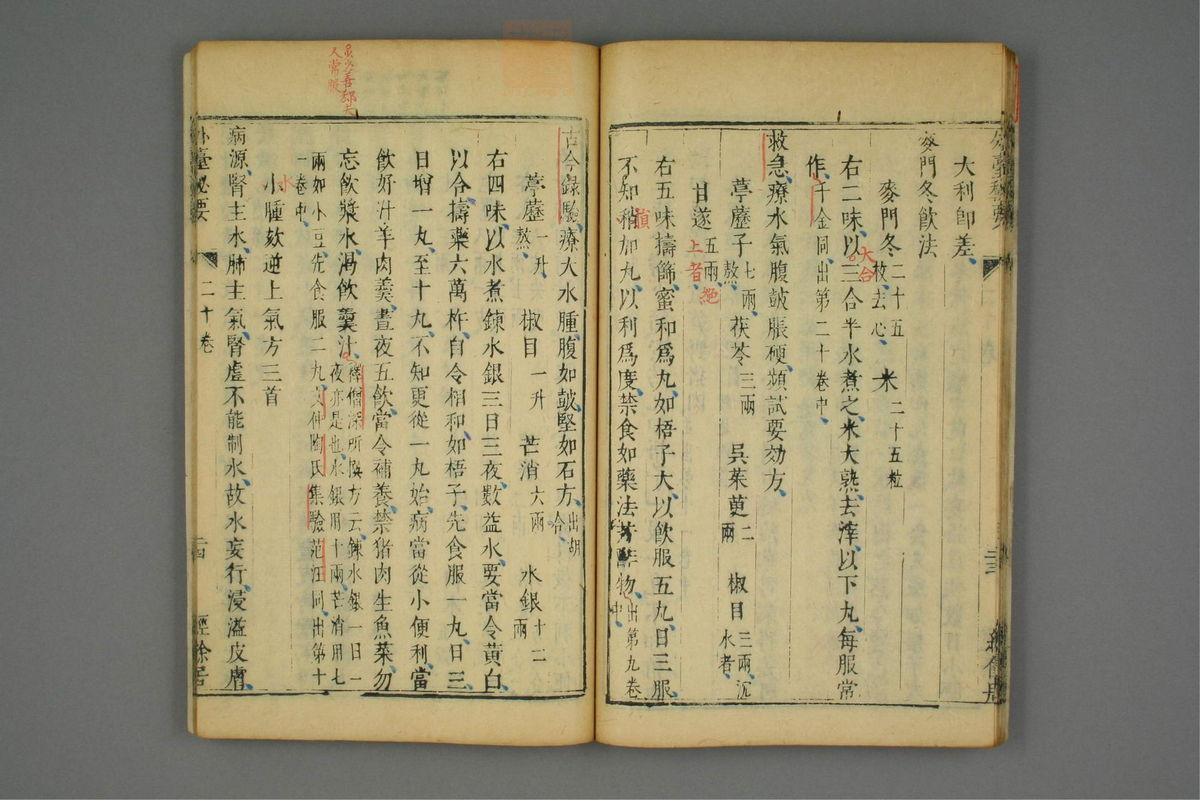 大利即差
麥門冬飲法
麥門冬二十五枚去心 米二十五粒
右二味以三合半水煮之米大熟去滓以下丸每服常
大合
作千金同出第二十卷中
救急療水氣腹皷脹硬頻試要効方
葶藶子七兩熬 茯苓三兩 吳茱萸二兩 椒目三兩沉水者
甘遂五兩
上者
絕
右五味擣篩蜜和爲丸如梧子大以飲服五丸日三服
不知稍加丸以利爲度禁食如藥法 物出第九卷中
古今錄驗療大水腫腹如皷堅如石方出胡合
葶藶一升熬 椒目一升 芒消六兩 水銀十二兩
右四味以水煮鍊水銀三日三夜數益水要當令黄白
以合擣藥六萬杵自令相和如梧子先食服一丸日三
日增一丸至十丸不知更從一丸始病當從小便利當
飲好汁羊肉羹晝夜五飲當令補養禁猪肉生魚菜勿
忘飲漿水渴飲羹汁禆僧深所撰方云鍊水銀一日一夜亦是也水銀用十兩芒消用七
兩如小豆先食服二丸文仲陶氏集驗范汪同出第十一卷中
水
小腫欬逆上氣方三首
病源腎主水肺主氣腎虛不能制水故水妄行浸溢皮膚
外臺秘要
二十卷
二四
經餘居